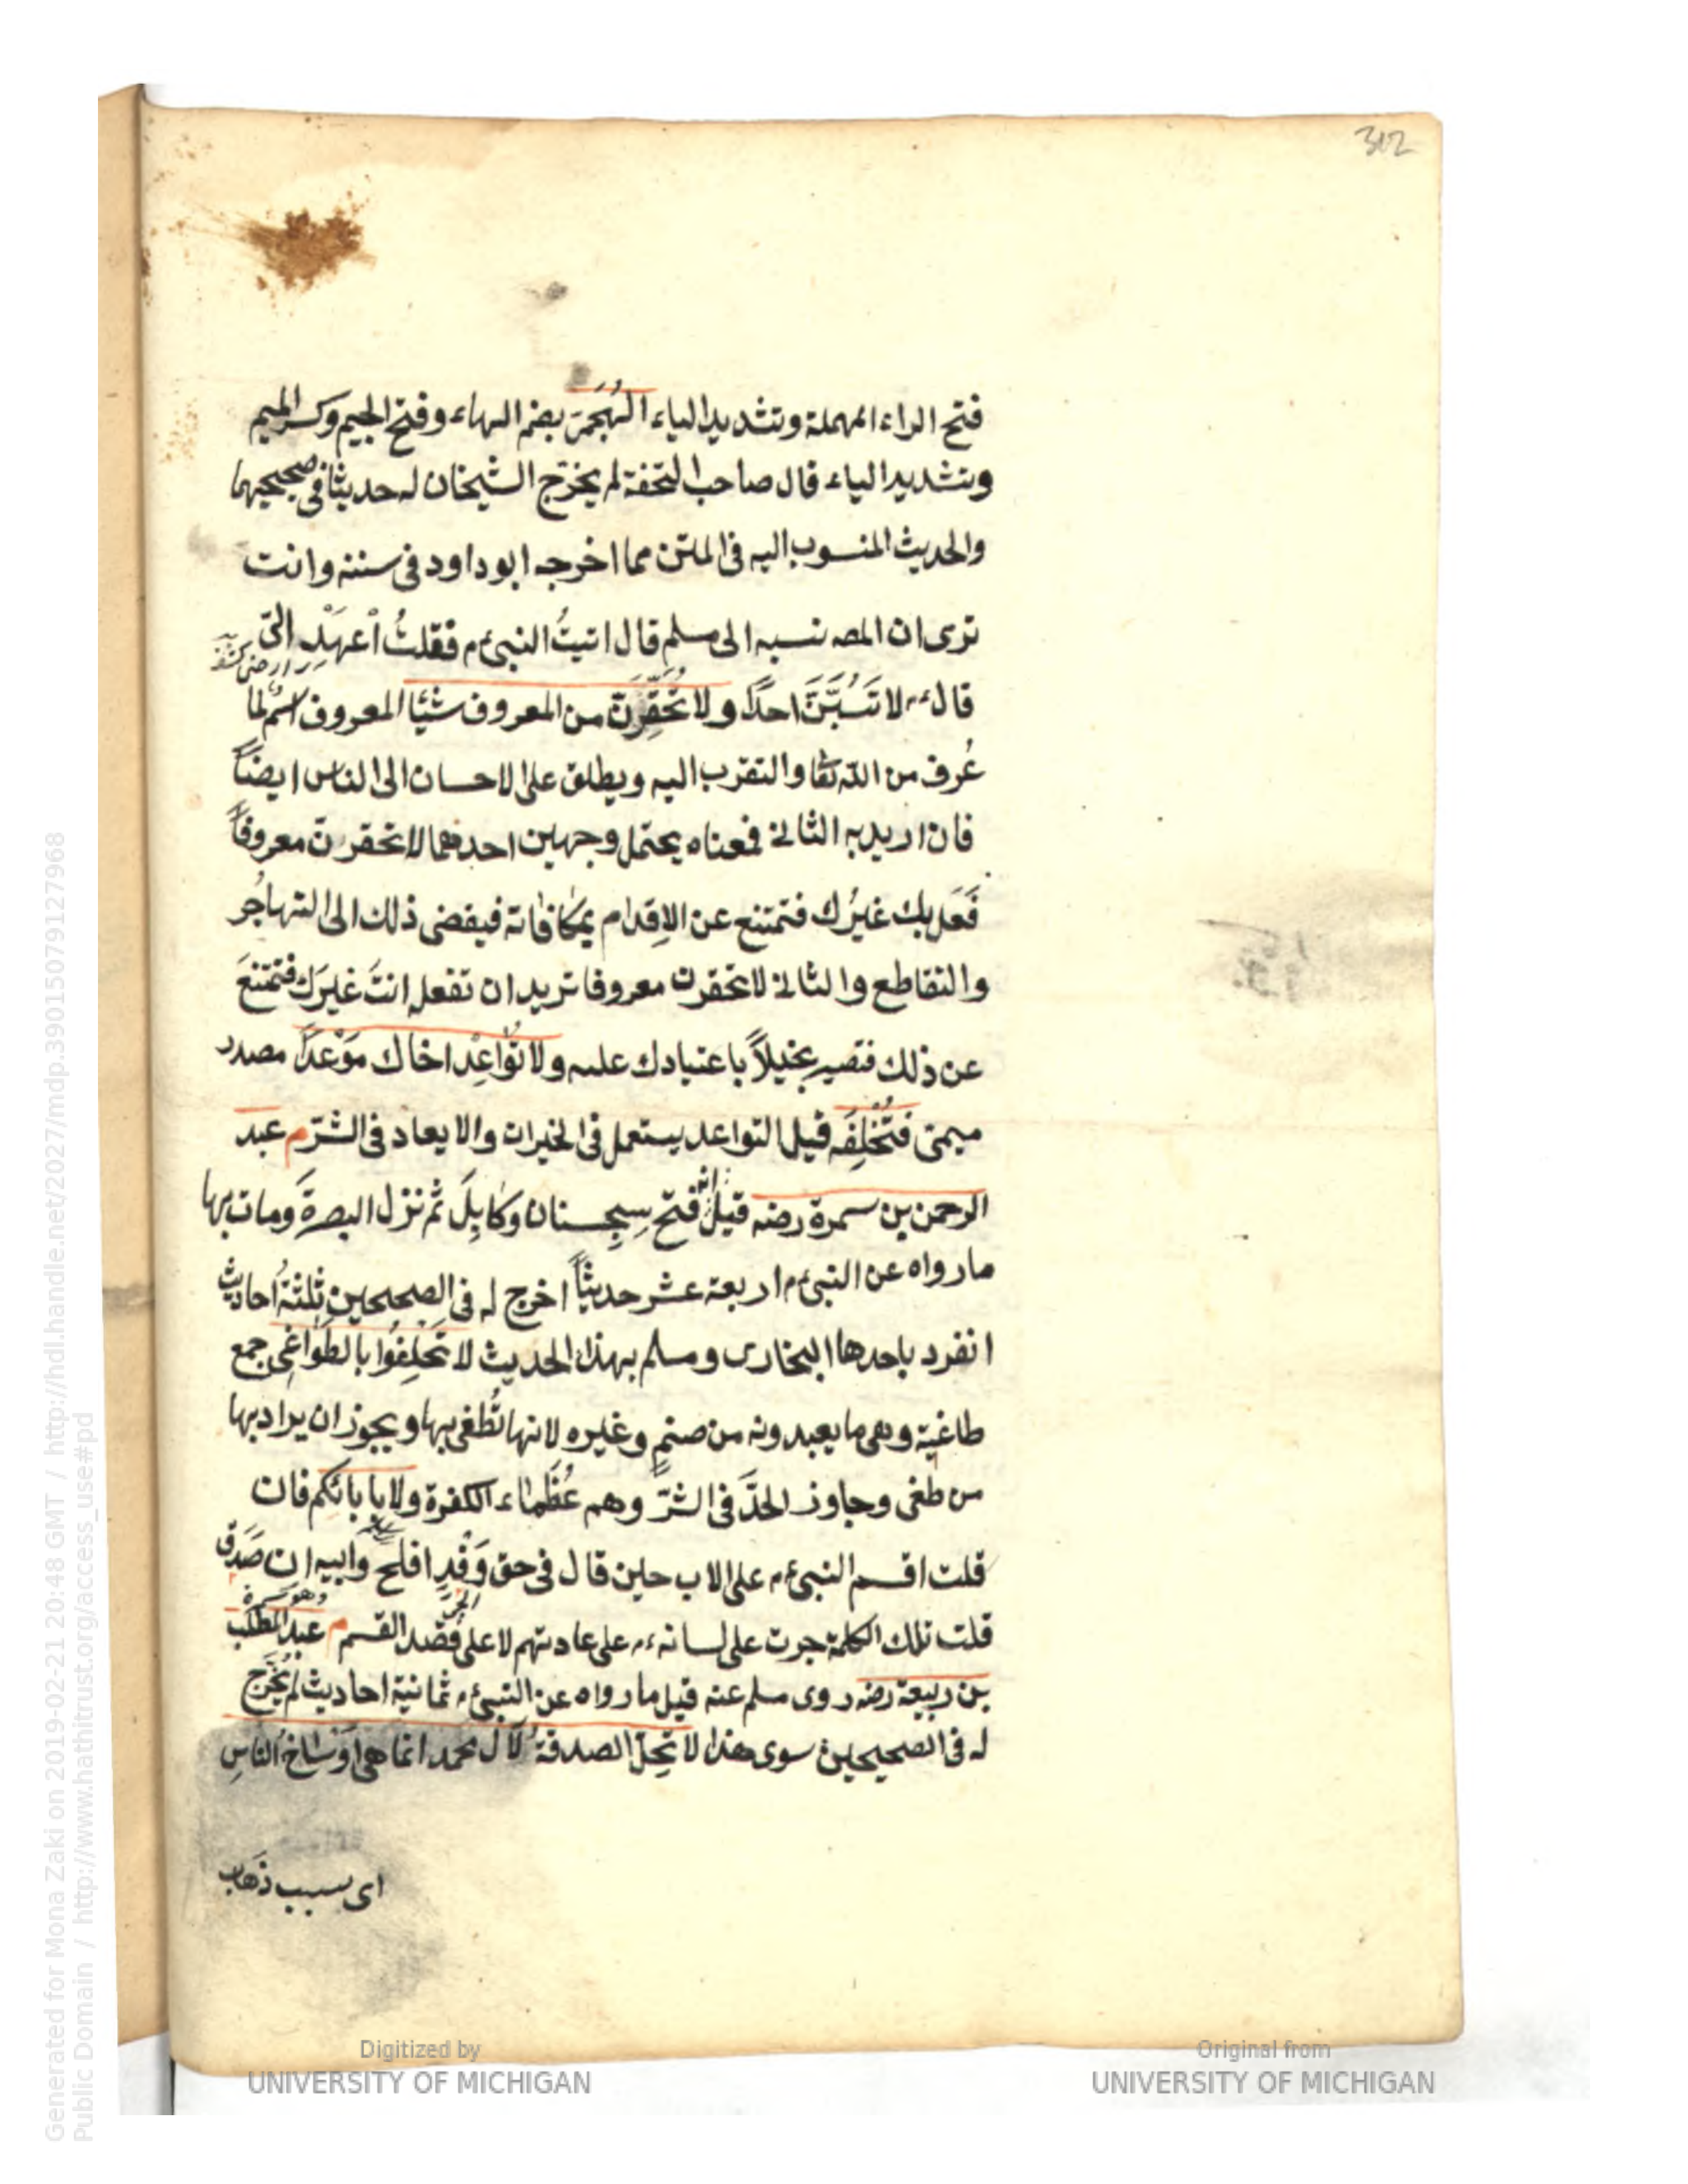 312
فتح الراء المهملة وتشديد الياء الهُجَمىّ بضم الهاء وفتح الجيم وكسر الميم
وتشديد الياء قال صاحب التحفة لم يخرّج الشيخان له حديثا فى صحيحيهما
والحديث المنسوب اليه فى المتن مما اخرجه ابو داود فى سننه وانت
ترى ان المصه نسبه الى مسلم قال اتيتُ النبىءم فقلتُ اعهَدْ الىّ
قال ءم لا تَسُبَّنَّ احدًا ولا تُحَقِّرَنَّ من المعروف شيئا المعروف اسمٌ لما
عُرف من الله تعا والتقرب اليه ويطلق على الاحسان الى الناس ايضًا
فان اريد به الثانى فمعناه يحتمل وجهين احدهما لا تحقرن معروفًا
فَعَل بك غيرُك فتمتنع عن الاِقدام بمكافاته فيفضى ذلك الى التهاجُر
والتقاطع والثانى لا تحقرن معروفا تريد ان تفعل انتَ غيرَك فتمتنعَ
عن ذلك فتصير بخيلاً باعتيادك عليه ولا تُواعِدْ اخاك مَوْعدًا مصدر
ميمى فتُخْلِفَه قيل التواعد يستعمل فى الخيرات والايعاد فى الشرّ م عبد
الرحمن بن سمرة رضه قيل انه فتح سِجِستان وكابِلَ ثم نزل البصرةَ ومات بها
ما رواه عن النبىءم اربعة عشر حديثًا اخرج له فى الصحيحين ثلثةُ احاديث
انفرد باحدها البخارى ومسلم بهذا الحديث لا تَحْلِفُوا بالطَواغِى جمع
طاغية وهى ما يعبدونه من صنمٍ وغيره لانها تُطْغى بها ويجوز ان يراد بها
من طغى وجاوز الحدّ فى الشرّ وهم عُظَماء الكفرة ولا بابائكم فان
قلت اقسم النبىءم على الاب حين قال فى حق وَفْدٍ افلح وابيه ان صَدَق
قلت تلك الكلمة جرت على لسانه ءم على عادتهم لا على قصد القسم م عبدُ المطّلب
بن ربيعة رضه روى مسلم عنه قيل ما رواه عن النبىءم ثمانية احاديث لم يُخَرَّج
له فى الصحيحين سوى هذا لا تحِلّ الصدقةُ لآل محمد انما هى اَوْساخ الناسِ
اى سبب ذَهاب
Digitized by
UNIVERSITY OF MICHIGAN
Original from
UNIVERSITY OF MICHIGAN
Generated for Mona Zaki on 2019-02-21 20:48 GMT / http://hdl.handle.net/2027/mdp.39015079127968
Public Domain / http://www.hathitrust.org/access_use#pd